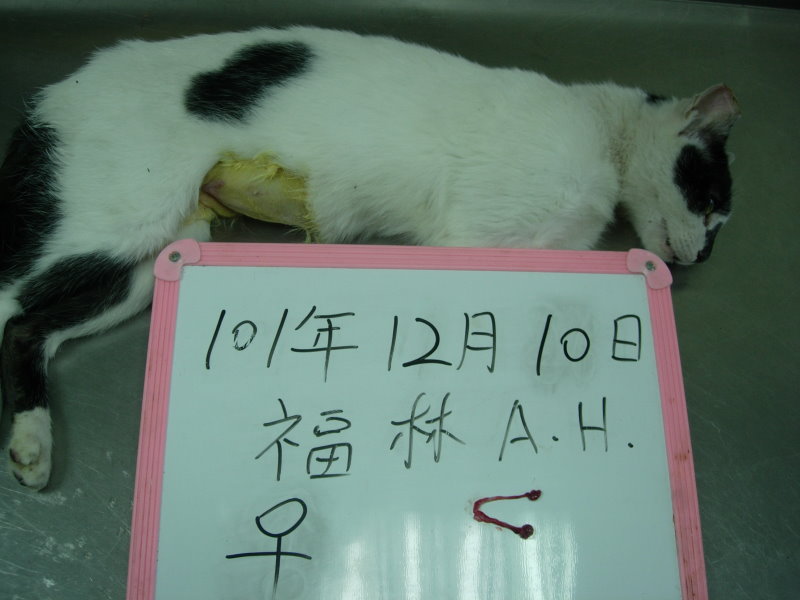 101年 12月 10日
福林 A.H.
♀